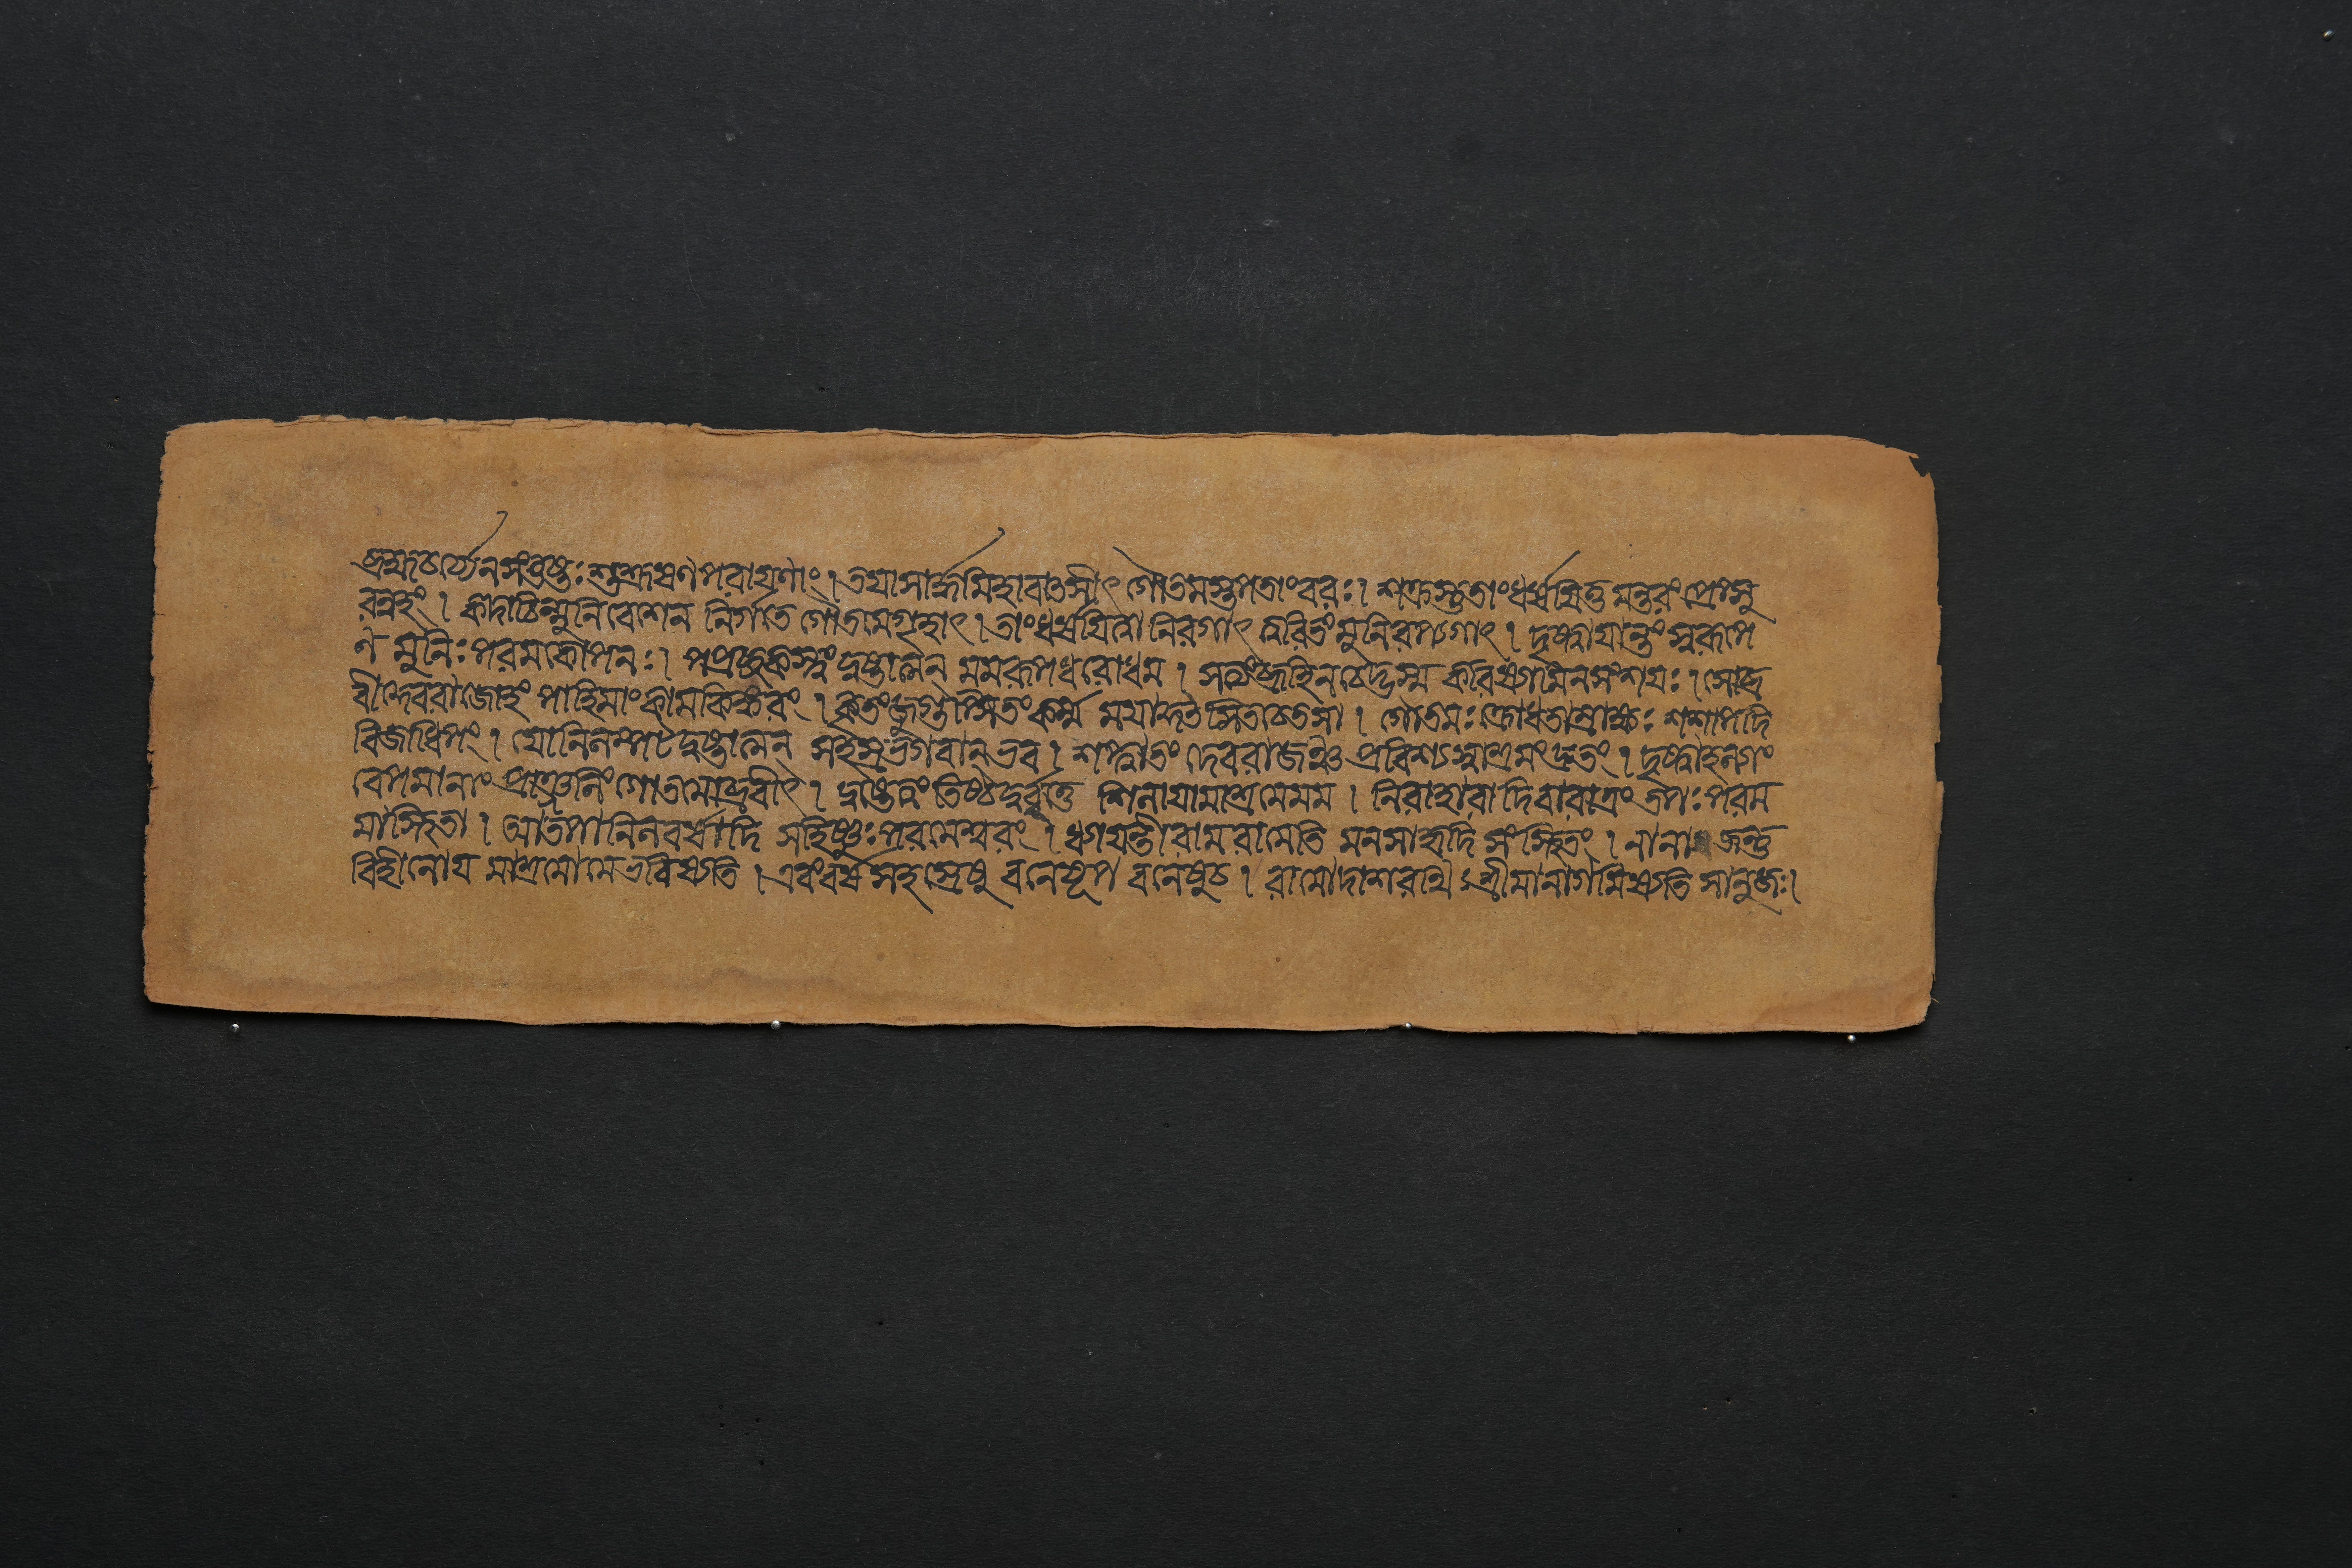 ব্রহ্মচর্য্যেনসংতুষ্তঃশুশ্রূষণপরায়ণাং । তয়াসার্দ্ধমিহাবাত্তসীৎ গৌতমস্তপতাংবরঃ । শক্রস্তুতাংধর্ষয়িতুমন্তরংপ্রেপ্সু
রন্বহং । কদাচিন্মুনিবেশেন নির্গতে গৌতমেগৃহাৎ । তাংধর্ষয়িত্বা নিরগাৎ ত্বরিতংমুনিরপ্যগাৎ । দৃষ্ট্বায়ান্তং স্বরূপে
ণ মুনিঃপরমকোপনঃ । পপ্রচ্ছকস্ত্বং দুষ্তাত্মন মমরূপধরোধম । সত্যংব্রূহিনচেদ্ভস্ম করিষ্যামিনসংশয়ঃ । সোব্র
বীদ্দেবরাজোহং পাহিমাংকামকিঙ্করং । কৃতংজুগুপ্সিতংকর্ম্ম ময়াকুত্সিতচেতসা । গৌতমঃক্রোধতাম্রাক্ষঃ শশাপদি
বিজাধিপং । যোনিলম্পট দুষ্তাত্মন্ সহস্রভগবান্ভব । শপ্ত্বাতং দেবরাজঞ্চ প্রবিশ্যস্বাশ্রমংদ্রুতং । দৃষ্ট্বাহল্যাং
বেপমানাং প্রাঞ্জলিংগৌতমোব্রবীৎ । দুষ্তেত্বং তিষ্ঠদুর্বৃত্তে শিলায়ামাশ্রমেমম । নিরাহারা দিবারাত্রং তপঃপরম
মাস্থিতা । আতপানিলবর্ষাদি সহিষ্ণুঃপরমেশ্বরং । ধ্যায়ন্তীরামরামেতি মনসাহৃদি সংস্থিতং । নানাজন্তু
বিহীনোয় মাশ্রমোমেভবিষ্যতি । এবংবর্ষসহস্রেষু বনেষূপ বনেষুচ । রামোদাশরথিঃশ্রীমানাগমিষ্যতি সানুজঃ।